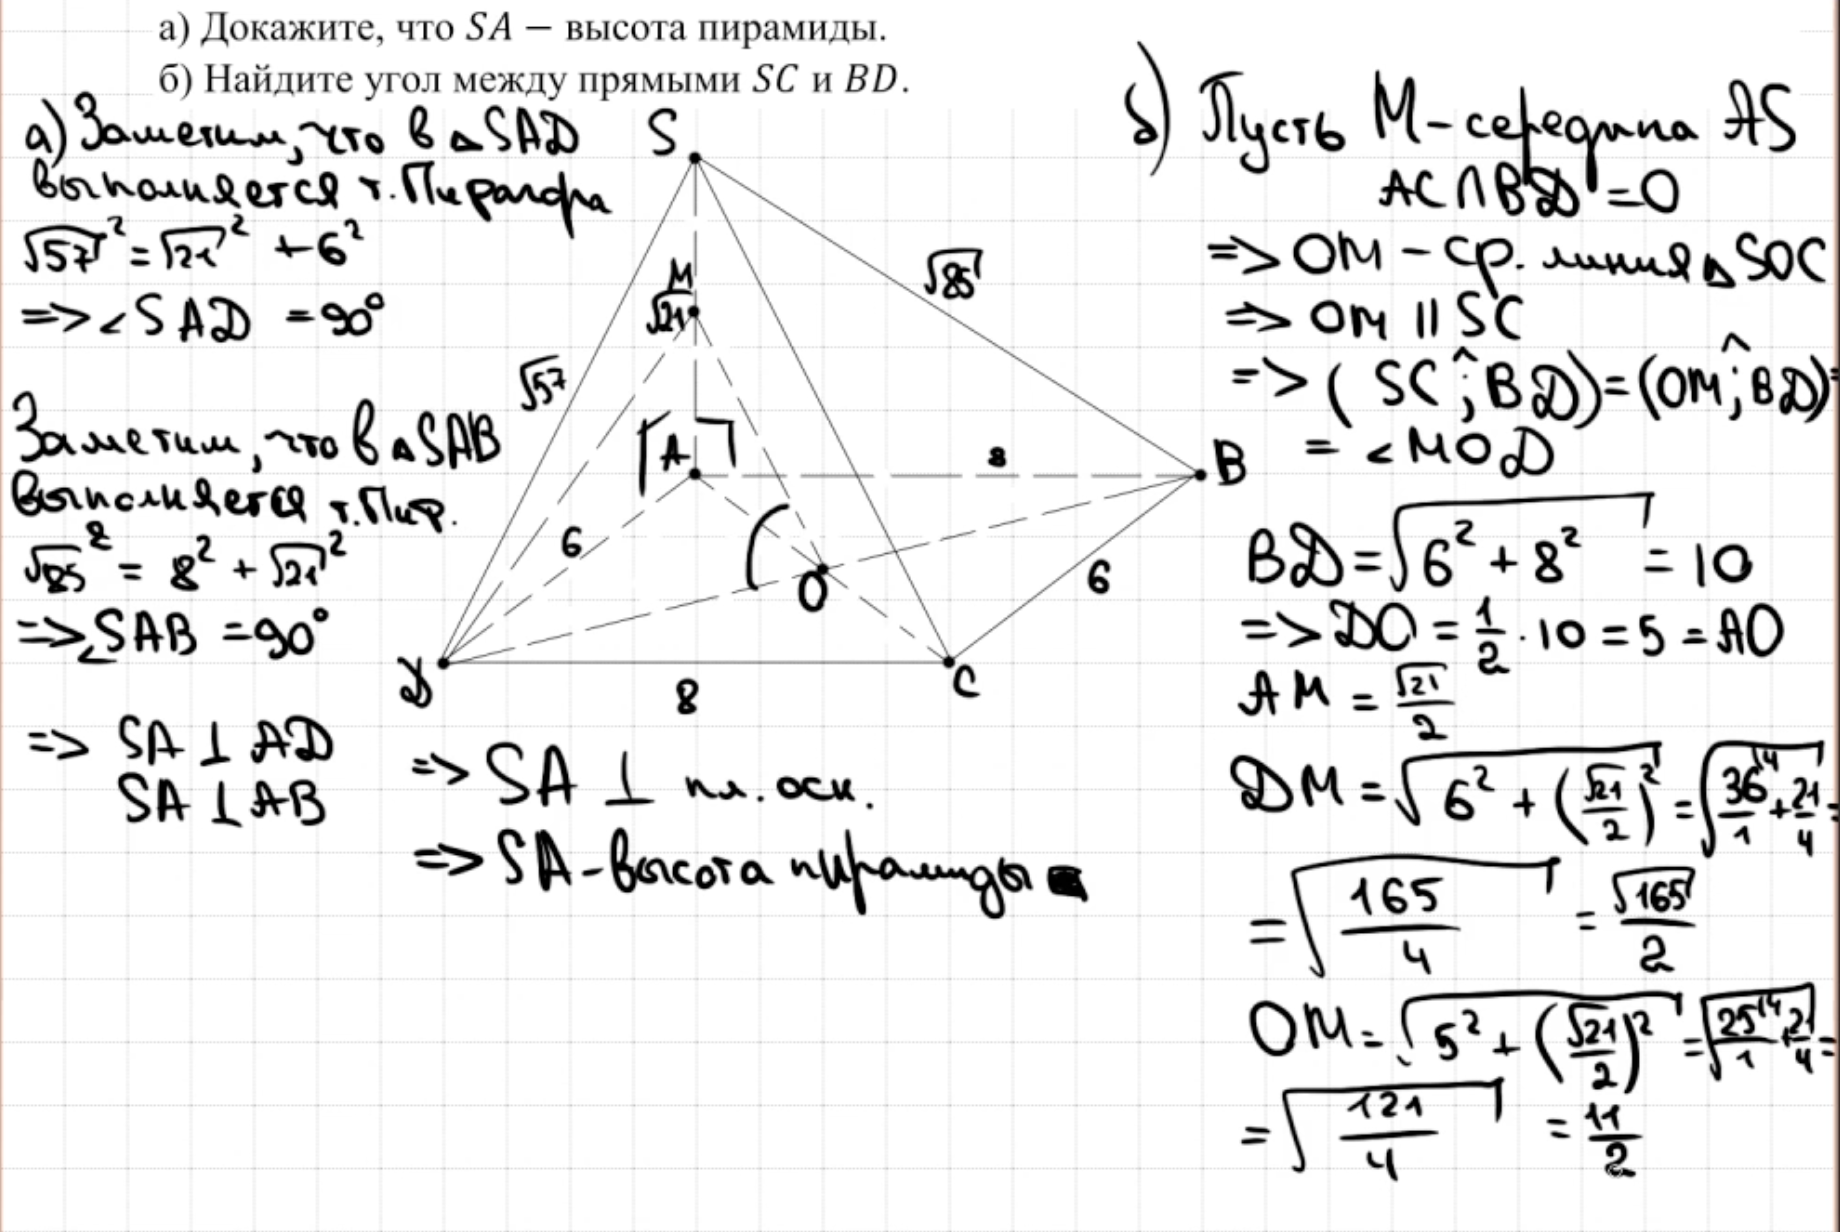 а) Докажите, что SA − высота пирамиды.
б) Найдите угол между прямыми SC и BD.
а) Заметим, что в △SAD
выполняется т. Пифагора
√57² = √21² + 6²
=> ∠SAD = 90°
Заметим, что в △SAB
выполняется т. Пиф.
√85² = 8² + √21²
=> ∠SAB = 90°
=> SA ⊥ AD
SA ⊥ AB
=> SA ⊥ пл. осн.
=> SA - высота пирамиды
S
M
√21
√57
√85
A
8
B
6
O
6
D
8
C
б) Пусть M - середина AS
AC ∩ BD = O
=> OM - ср. линия △SOC
=> OM || SC
=> (SC ^; BD) = (OM ^; BD) =
= ∠MOD
BD = √6² + 8² = 10
=> DO = 1/2 · 10 = 5 = AO
AM = √21/2
DM = √6² + (√21/2)² = √36/1 \4 + 21/4 =
= √165/4 = √165/2
OM = √5² + (√21/2)² = √25/1 \4 + 21/4 =
= √121/4 = 11/2